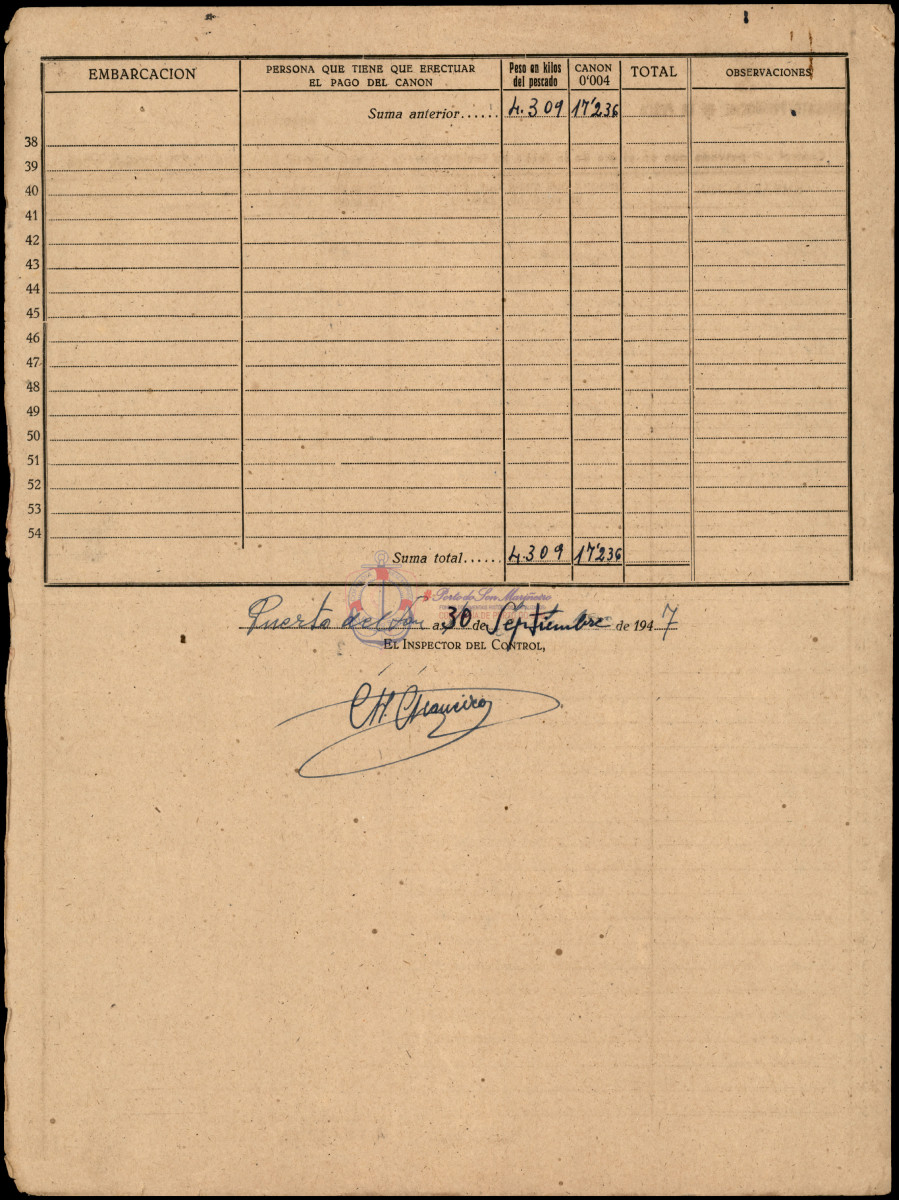 EMBARCACION PERSONA QUE TIENE QUE EFECTUAR EL PAGO DEL CANON Peso en kilos del pescado CANON 0'004 TOTAL OBSERVACIONES
Suma anterior...... 4.309 17'236
38
39
40
41
42
43
44
45
46
47
48
49
50
51
52
53
54
Suma total...... 4.309 17'236
Porto do Son Mariñeiro
Puerto del Son a 30 de Septiembre de 1947
EL INSPECTOR DEL CONTROL,